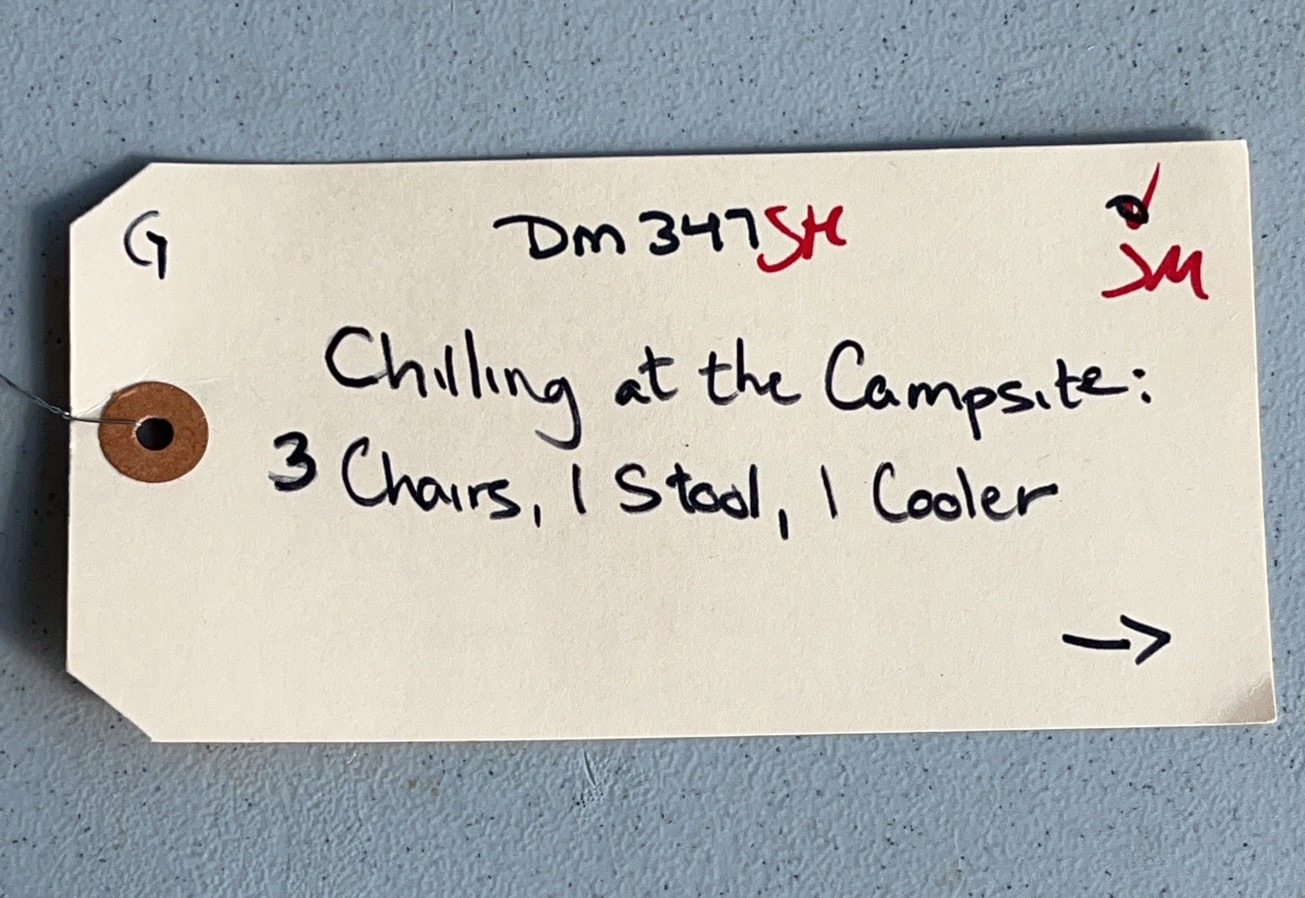 G DM347SH
JM
Chilling at the Campsite:
3 Chairs, 1 Stool, 1 Cooler
→